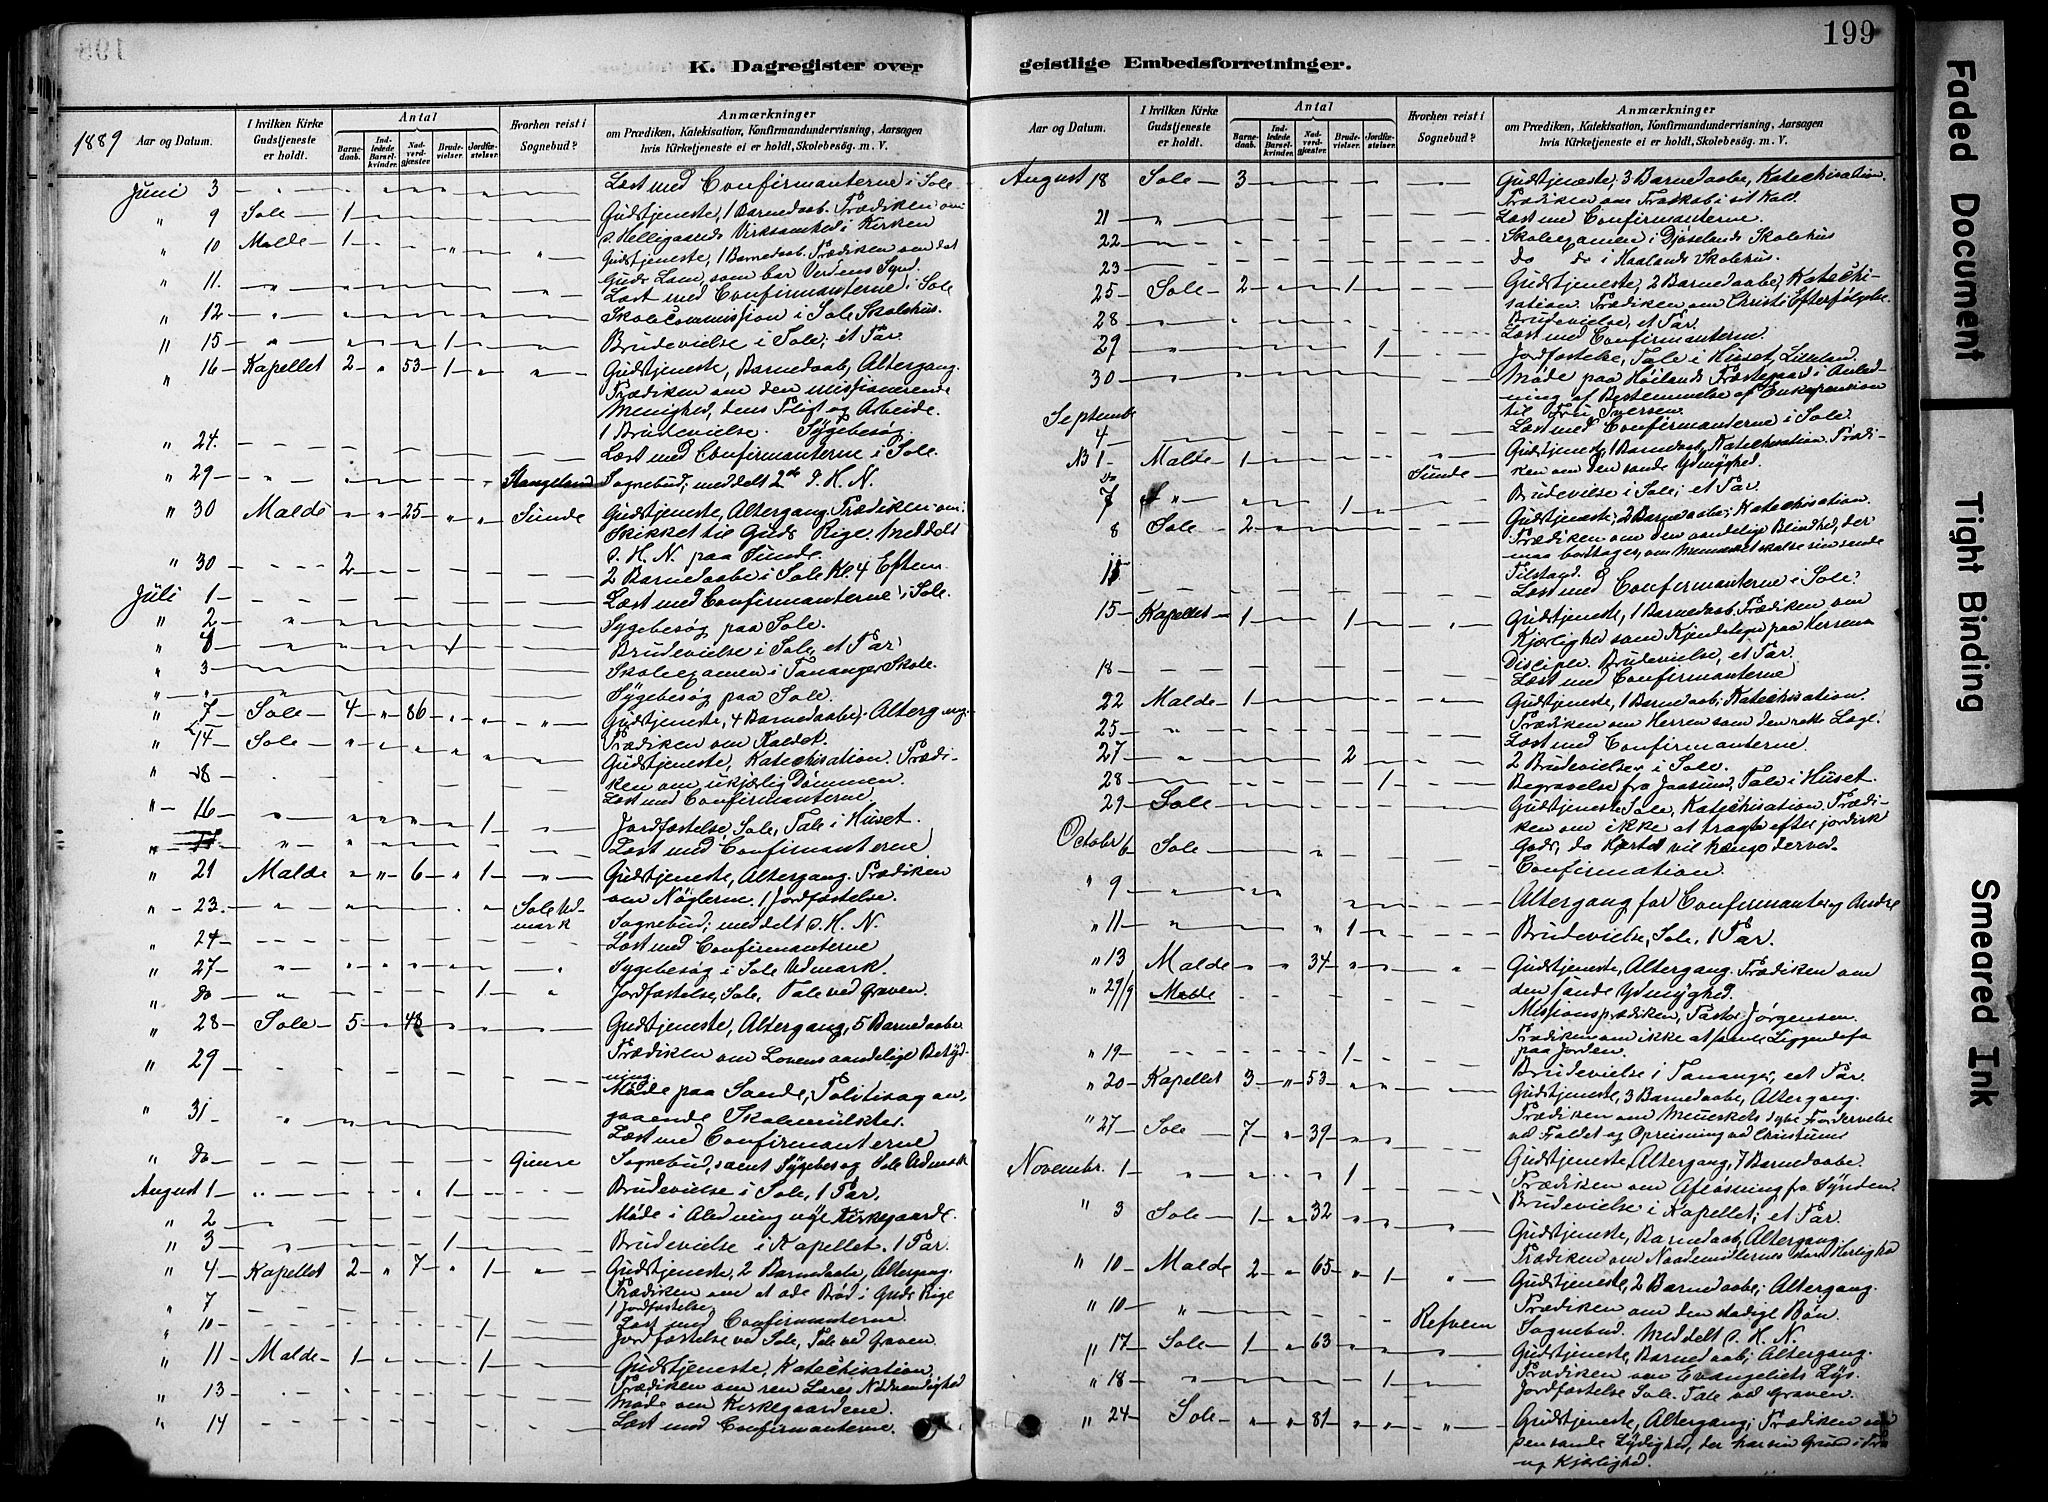 199
K. Dagregister over
geistlige Embedsforretninger.
1889
Aar og Datum.
I hvilken Kirke Gudstjeneste er holdt.
Antal
Barnedaab.
Indledede Barselkvinder.
Nadverdgjæster
Brudevielser.
Jordfæstelser.
Hvorhen reist i Sognebud?
Anmærkninger
om Prædiken, Katekisation, Konfirmandundervisning, Aarsagen
hvis Kirketjeneste ei er holdt, Skolebesøg. m. V.
Juni 3 Læst med Confirmanterne i Sole
" 9 Sole 1 Gudstjeneste, 1 Barnedaab. Prædiken om
Helligaands Virksomhed i Kirken
" 10 Malde 1 Gudstjeneste, 1 Barnedaab. Prædiken om det
Guds Lam, som bar Verdens Synd.
" 11. Læst med Confirmanterne i Sole
" 12 Skolecommission i Sole Skolehus.
" 15 1 Brudevielse i Sole, et Par.
" 16 Kapellet 2 " 53 1 Gudstjeneste, Barnedaab, Altergang.
Prædiken om den missionerende
Menighed, dens Pligt og Arbeide.
1 Brudevielse. Sygebesøg.
" 24. Læst med Confirmanterne i Sole.
" 29 Stangeland Sognebud; meddelt 2de S. H. N.
" 30 Malde " " 25 Sunde Gudstjeneste, Altergang. Prædiken om:
Skikket til Guds Rige. Meddelt
S. H. N. paa Sunde.
" 30 2 2 Barnedaabe i Sole Kl. 4 Efterm.
Juli 1 Læst med Confirmanterne i Sole.
" 2 Sygebesøg paa Sole.
" 4 1 Brudevielse i Sole, et Par
" 3 Skoleexamen i Tananger Skole.
" Sygebesøg paa Sole.
" 7 Sole 4 " 86 Gudstjeneste, 4 Barnedaabe; Altergang.
Prædiken om Kaldet.
" 14 Sole Gudstjeneste, Katechisation. Prædi-
ken om ukjærlig Dømmen.
" 18 Læst med Confirmanterne
" 16 1 Jordfæstelse, Sole, Tale i Huset.
" Læst med Confirmanterne
" 21 Malde " " 6 " 1 Gudstjeneste, Altergang. Prædiken
om Nøglerne. 1 Jordfæstelse.
" 23. Sole Udmark Sognebud; meddelt S. H. N.
" 24 Læst med Confirmanterne
" 27 Sygebesøg i Sole Udmark.
" do 1 Jordfæstelse, Sole, Tale ved Graven.
" 28 Sole 5 " 48 Gudstjeneste, Altergang, 5 Barnedaabe.
Prædiken om Lovens aandelige Betyd-
ning.
" 29 Møde paa Sande; Politisag an-
gaaende Skolemulkter.
" 31 Læst med Confirmanterne
" do Sognebud, samt Sygebesøg Sole Udmark
August 1 1 Brudevielse i Sole, 1 Par.
" 2 Møde i Anledning nye Kirkegaarde.
" 3 1 Brudevielse i Kapellet. 1 Par.
" 4 Kapellet 2 " 7 " 1 Gudstjeneste, 2 Barnedaabe, Altergang.
Prædiken om at æde Brød i Guds Rige
1 Jordfæstelse
" 7 Læst med Confirmanterne
" 10 1 Jordfæstelse ved Sole, Tale ved Graven.
" 11 Malde 1 1 Gudstjeneste, Katechisation,
Prædiken om ren Læres Nødvendighed
" 13 Møde om Kirkegaardene.
" 14 Læst med Confirmanterne.
Aar og Datum.
I hvilken Kirke Gudstjeneste er holdt.
Antal
Barnedaab.
Indledede Barselkvinder.
Nadverdgjæster
Brudevielser.
Jordfæstelser.
Hvorhen reist i Sognebud?
Anmærkninger
om Prædiken, Katekisation, Konfirmandundervisning, Aarsagen
hvis Kirketjeneste ei er holdt, Skolebesøg. m. V.
August 18 Sole 3 Gudstjeneste, 3 Barnedaabe, Katechisation.
Prædiken om Troskab i sit Kald.
21 Læst med Confirmanterne.
22 Skoleexamen i Djøselands Skolehus
23 do do i Haalands Skolehus.
25 Sole 2 1 Gudstjeneste, 2 Barnedaabe, Katechi-
sation. Prædiken om Christi Efterfølgelse
Brudevielse, et Par.
28 Læst med Confirmanterne.
29 1 Jordfæstelse, Tale i Huset,
30 Møde paa Høilands Præstegaard i Anled-
ning af Bestemmelse af Enkepension
til Fru Iversen.
Septembr
4 Læst med Confirmanterne i Sole.
NB 1 Malde 1 Sunde Gudstjeneste, 1 Barnedaab, Katechisation. Prædi-
ken om den sande Ydmyghed.
7 1 Brudevielse i Sole; et Par.
8 Sole 2 Gudstjeneste; 2 Barnedaabe; Katechisation.
Prædiken om den aandelige Blindhed, der
maa borttages, om Mennesket skal se sin sande
Tilstand.
11 Læst med Confirmanterne i Sole.
15 Kapellet 1 1 Gudstjeneste, 1 Barnedaab. Prædiken om
Kjærlighed som Kjendetegn paa Herrens
Disciple. Brudevielse, et Par.
18 Læst med Confirmanterne
22 Malde 1 Gudstjeneste, 1 Barnedaab; Katechisation.
Prædiken om Herren som den rette Læge.
25 Læst med Confirmanterne
27 2 2 Brudevielser i Sole.
28 1 Begravelse fra Jaasund, Tale i Huset.
29 Sole Gudstjeneste Sole, Katechisation. Prædi-
ken om ikke at tragte efter jordisk
Gods, da Hjertet vil hænge derved.
Octobr 6 Sole Confirmation.
" 9 Altergang for Confirmanter og Andre
" 11 1 Brudevielse, Sole, 1 Par.
" 13 Malde " " 34 Gudstjeneste, Altergang. Prædiken om
den sande Ydmyghed.
" 29/9 Malde Missionsprædiken, Pastor Jørgensen.
Prædiken om ikke at samle Liggendefæ
paa Jorden.
" 19 1 Brudevielse i Tananger, eet Par.
" 20 Kapellet 3 " 53 Gudstjeneste, 3 Barnedaabe, Altergang.
Prædiken om Menneskets dybe Fordervelse
ved Faldet og Opreisning ved Christum
" 27 Sole 7 " 39 Gudstjeneste, Altergang, 7 Barnedaabe.
Prædiken om Afløsning fra Synden.
Novembr. 1 1 Brudevielse i Kapellet; et Par.
" 3 Sole 1 " 32 Gudstjeneste, Barnedaab, Altergang.
Prædiken om Naademidlernes store Herlighed
" 10 Malde 2 " 65 " 1 Gudstjeneste, 2 Barnedaabe; Altergang.
Prædiken om den stadige Bøn.
" 10 Refvem Sognebud. Meddelt S. H. N.
" 17 Sole 1 " 63 Gudstjeneste, Barnedaab; Altergang.
Prædiken om Evangeliets Lys.
" 18 1 Jordfæstelse Sole. Tale ved Graven.
" 24 Sole " " 81 Gudstjeneste, Altergang; Prædiken om
den sande Lydighed, der har sin Grund i Tro
og Kjærlighed.
Faded Document
Tight Binding
Smeared Ink